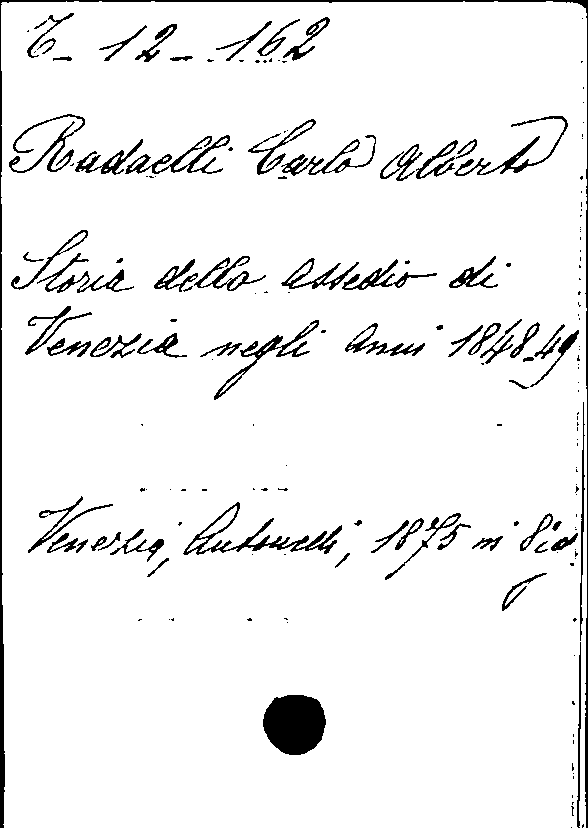 T- 12 - 162
Radaelli Carlo Alberto
Storia dello assedio di
Venezia negli anni 1848-49
Venezia, Antonelli, 1875 in 8